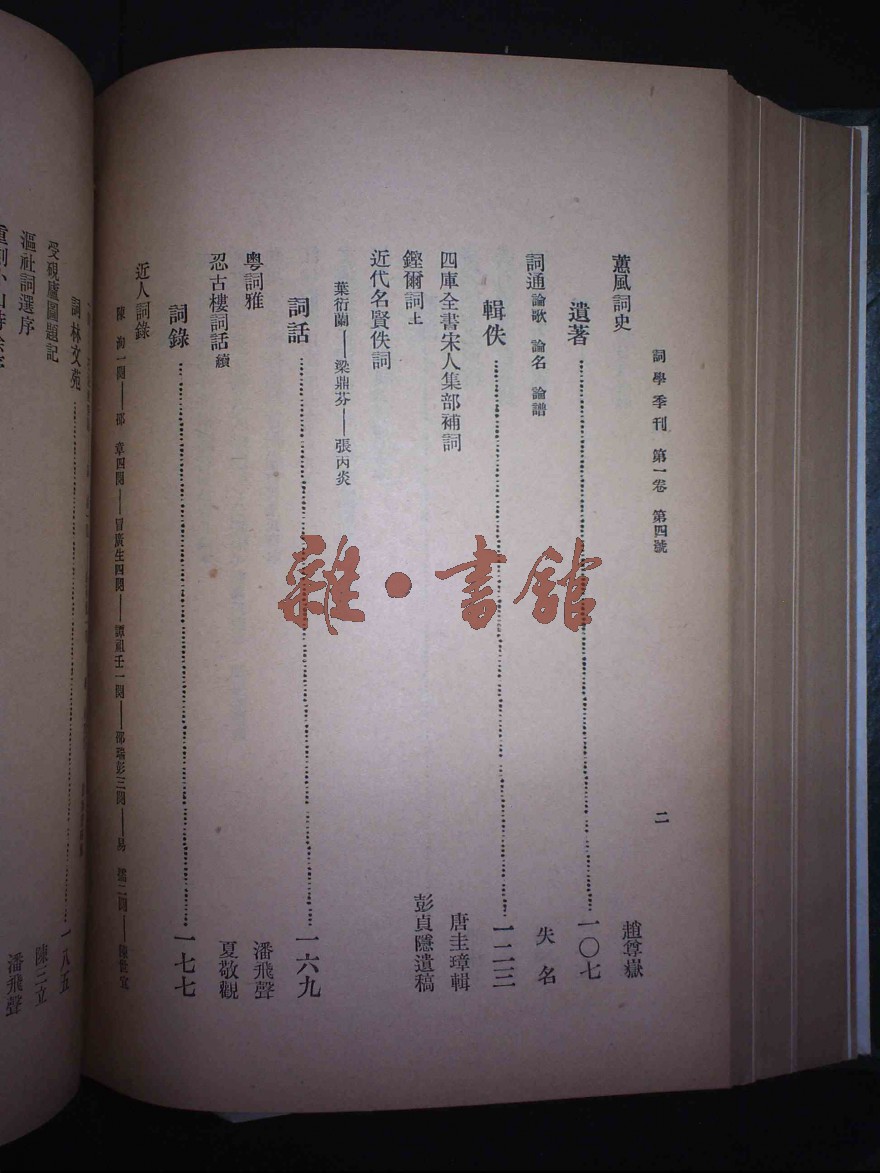 詞學季刊 第一卷 第四號 二
蕙風詞史 趙尊嶽
遺著 一〇七
詞通 論歌 論名 論譜 失名
輯佚 一二三
四庫全書宋人集部補詞 唐圭璋輯
鏗爾詞上 彭貞隱遺稿
近代名賢佚詞
葉衍蘭——梁鼎芬——張丙炎
詞話 一六九
粵詞雅 潘飛聲
忍古樓詞話 續 夏敬觀
詞錄 一七七
近人詞錄
陳 洵一闋——邵 章四闋——冒廣生四闋——譚祖壬一闋——邵瑞彭三闋——易 孺二闋——陳世宜
詞林文苑 一八五
受硯廬圖題記 陳三立
漚社詞選序 潘飛聲
雜·書館